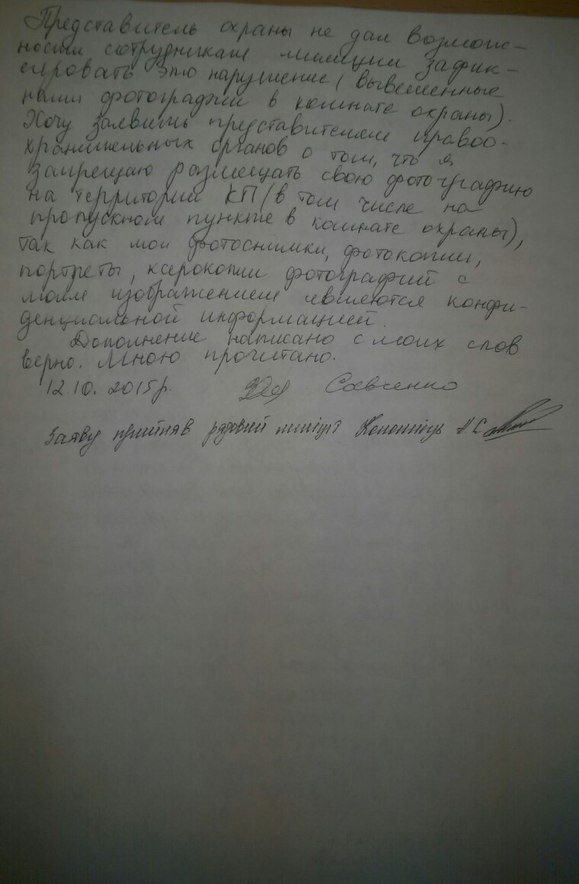 Представитель охраны не дал возмож-
ности сотрудникам милиции зафик-
сировать это нарушение (вывешенные
ними фотографий в комнате охраны).
Хочу заявить представителем правоо-
хранительных органов о том, что я
запрещаю размещать свою фотографию
на территории КП (в том числе на
пропускном пункте в комнате охраны),
так как мои фотоснимки, фотокопии,
портреты, ксерокопии фотографий с
моим изображением являются конфи-
денциальной информацией.
Дополнение написано с моих слов
верно. Мною прочитано.
12.10.2015г. Савченко
Заяву прийняв рядовий міліції